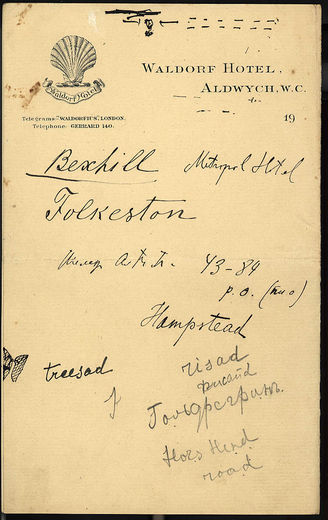 WALDORF HOTEL,
ALDWYCH, W.C.
Waldorf Hotel
Telegrams: "WALDORFIUS", LONDON.
Telephone: GERRARD 140.
19
Bexhill Metropol Hotel
Folkeston
43-84
p.o.
Hampstead
treesad
risad
road